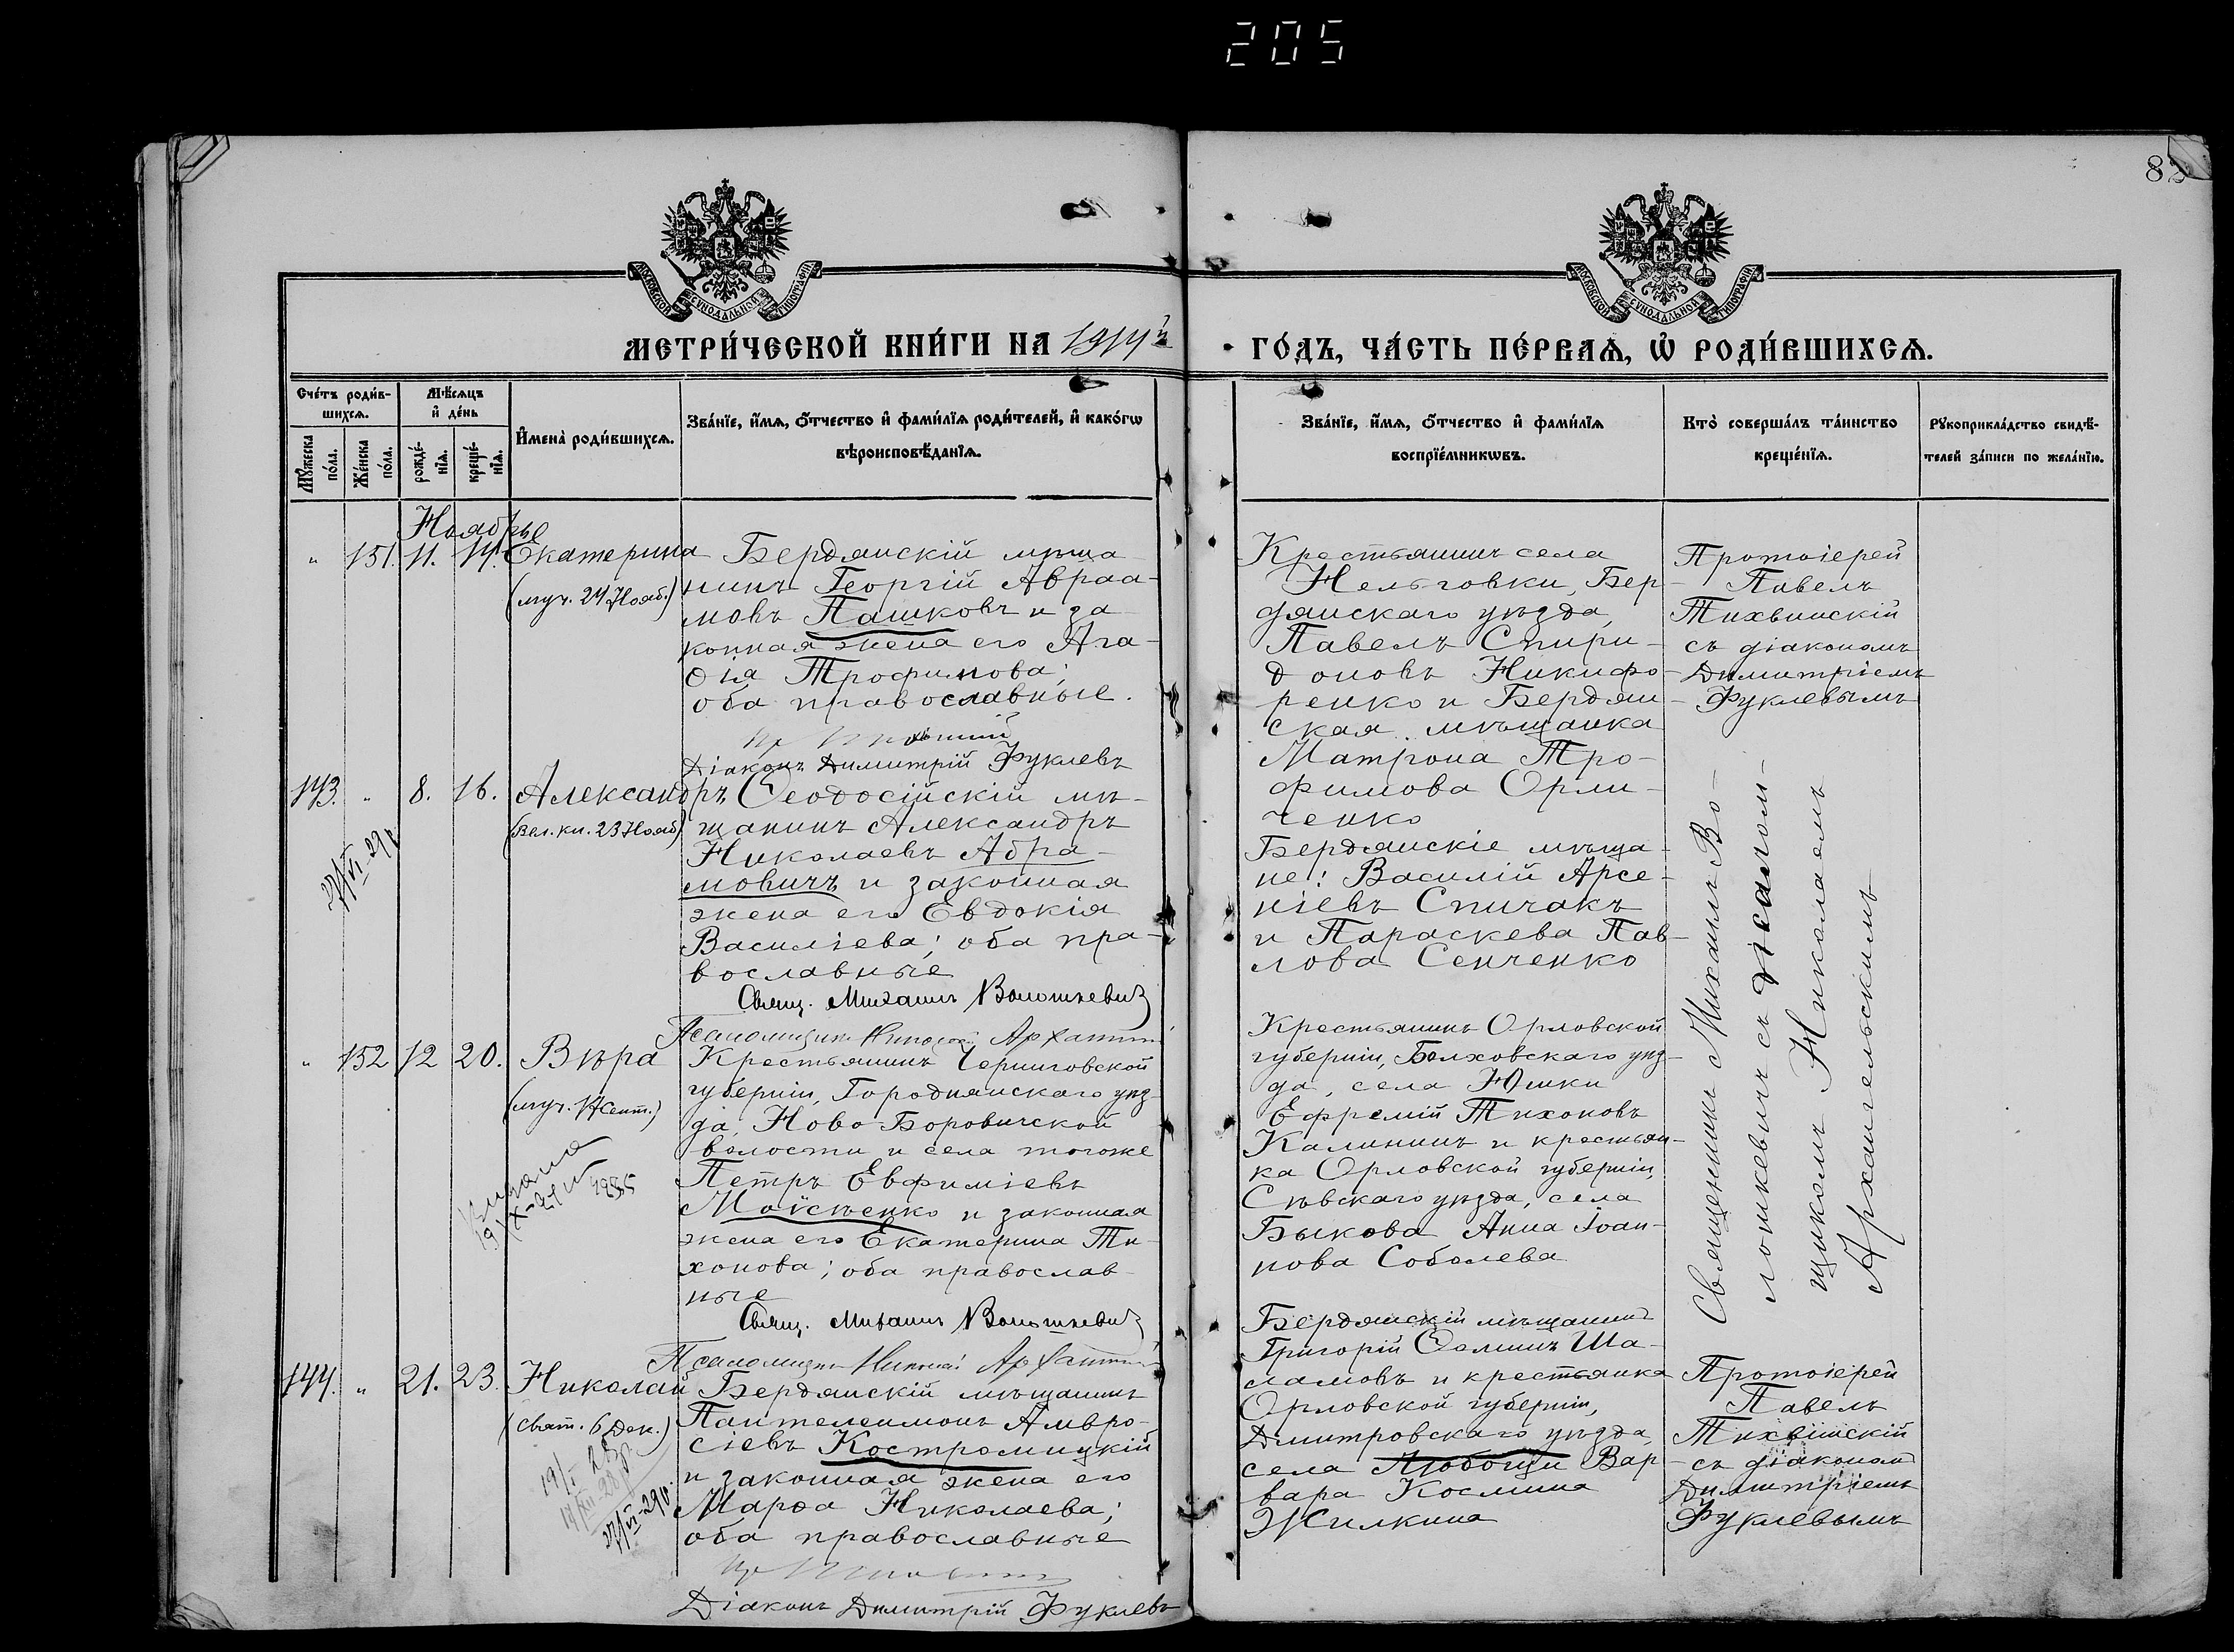 205
82
МОСКОВСКОЙ СѴНОДАЛЬНОЙ ТИПОГРАФІИ
МОСКОВСКОЙ СѴНОДАЛЬНОЙ ТИПОГРАФІИ
МЕТРИ́ЧЕСКОЙ КНИ́ГИ НА 1914й
ГО́ДЪ, ЧА́СТЬ ПЕ́РВАѦ, Ѡ РОДИ́ВШИХСѦ.
Сче́тъ роди́в-
шихсѧ.
Мꙋжеска
по́ла.
Же́нска
по́ла.
Мѣ́сѧцъ
и҆ де́нь
рожде́-
нїѧ.
креще́-
нїѧ.
И҆мена̀ роди́вшихсѧ.
Зва́нїе, и҆́мѧ, ѻ҆́тчество и҆ фами́лїѧ роди́телей, и҆ како́гѡ
вѣроисповѣ́данїѧ.
Зва́нїе, и҆́мѧ, ѻ҆́тчество и҆ фами́лїѧ
воспрїе́мникѡвъ.
Кто̀ соверша́лъ та́инство
креще́нїѧ.
Рꙋкоприкла́дство свидѣ́-
телей за́писи по жела́нїю.
Ноябрь
" 151. 11. 14. Екатерина
(муч. 24 Нояб.)
Бердянскій мѣща-
нинъ Георгій Авраа-
мовъ Пашковъ и за-
конная жена его Ага-
ѳія Трофимова;
оба православные.
Діаконъ Димитрій Фуклевъ
Крестьянинъ села
Нельговки, Бер-
дянскаго уѣзда,
Павелъ Спири-
доновъ Никифо-
ренко и Бердян-
ская мѣщанка
Матрона Тро-
фимова Орли-
ченко
Протоіерей
Павелъ
Тихвинскій
съ діакономъ
Димитріемъ
Фуклевымъ
143. " 8. 16. Александръ
(Вел. кн. 23 Нояб)
Ѳеодосійскій мѣ-
щанинъ Александръ
Николаевъ Абра-
мовичъ и законная
жена его Евдокія
Василіева; оба пра-
вославные
Свящ. Михаилъ Волошкевич
Псаломщикъ Николай
Бердянскіе мѣща-
не: Василій Арсе-
ніевъ Спичакъ
и Параскева Пав-
лова Сенченко
Священникъ Михаилъ Во-
лошкевичъ съ псалом-
щикомъ Николаемъ
Архангельскимъ
" 152 12 20. Вѣра
(муч. 17 Сент.)
1935
Крестьянинъ Черниговской
губерніи, Городнянскаго уѣз-
да, Ново-Боровичской
волости и села тогоже
Петръ Евфиміевъ
Моисѣенко и законная
жена его Екатерина Ти-
хонова; оба православ-
ные
Свящ. Михаилъ Волошкевич
Псаломщикъ Николай
Крестьянинъ Орловской
губерніи, Болховскаго уѣз-
да, села Юшки
Ефремій Тихоновъ
Калининъ и крестьян-
ка Орловской губерніи,
Сѣвскаго уѣзда, села
Быкова Анна Іоан-
нова Соболева
144. " 21. 23. Николай
(Свят. 6 Дек.)
Бердянскій мѣщанинъ
Пантелеимонъ Амвро-
сіевъ Костромицкій
и законная жена его
Марѳа Николаева;
оба православные
Діаконъ Димитрій Фуклевъ
Бердянскій мѣщанинъ
Григорій Ѳоминъ Ша-
ламовъ и крестьянка
Орловской губерніи,
Дмитровскаго уѣзда,
села Любощи Вар-
вара Космина
Жилкина
Протоіерей
Павелъ
Тихвинскій
съ діакономъ
Димитріемъ
Фуклевымъ